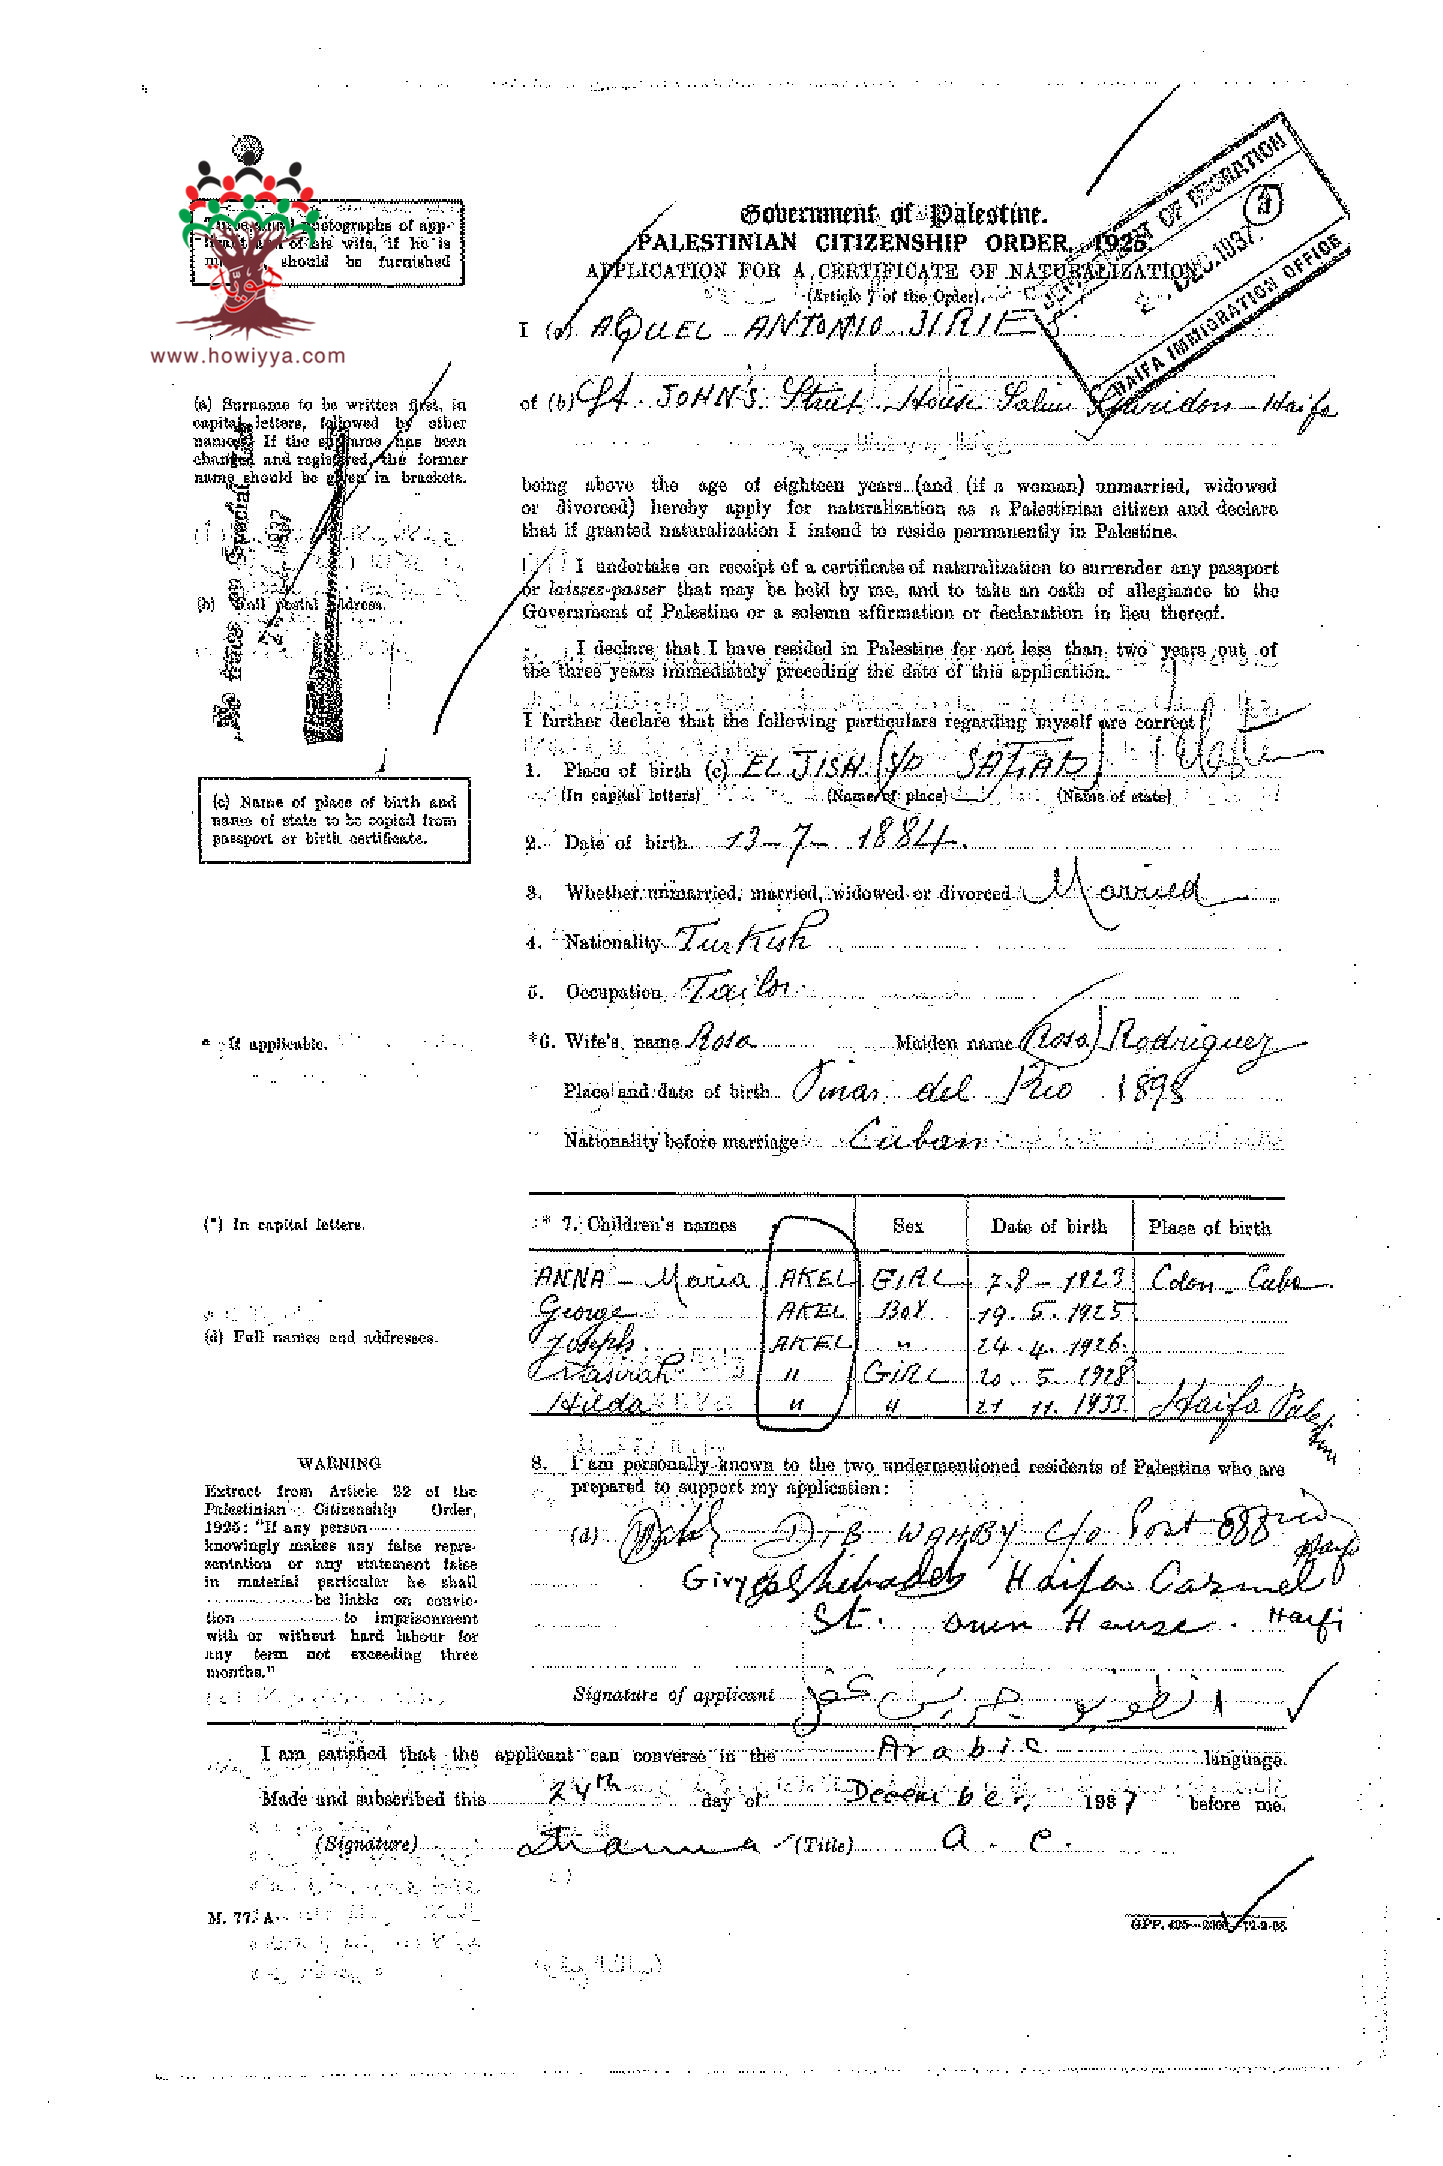 DEPARTMENT OF MIGRATION
DEC. 1937
HAIFA IMMIGRATION OFFICE
Government of Palestine.
PALESTINIAN CITIZENSHIP ORDER, 1925.
APPLICATION FOR A CERTIFICATE OF NATURALIZATION
(Article 7 of the Order).
photographs of app-
of his wife, if he is
should be furnished
هوية
www.howiyya.com
I (a) AQUEL ANTONIO JIRIES
of (b) St. JOHN'S Street, House Salim - Haifa
(a) Surname to be written first, in
capital letters, followed by other
names. If the surname has been
changed and registered, the former
name should be given in brackets.
(b) Full postal address.
being above the age of eighteen years (and (if a woman) unmarried, widowed
or divorced) hereby apply for naturalisation as a Palestinian citizen and declare
that if granted naturalization I intend to reside permanently in Palestine.
I undertake on receipt of a certificate of naturalization to surrender any passport
or laissez-passer that may be held by me, and to take an oath of allegiance to the
Government of Palestine or a solemn affirmation or declaration in lieu thereof.
I declare that I have resided in Palestine for not less than two years out of
the three years immediately preceding the date of this application.
I further declare that the following particulars regarding myself are correct
1. Place of birth (c) EL JISH (S/D SAFAD)
(In capital letters) (Name of place) (Name of state)
(c) Name of place of birth and
name of state to be copied from
passport or birth certificate.
2. Date of birth 13-7-1884.
3. Whether unmarried, married, widowed or divorced Married
4. Nationality Turkish
5. Occupation Tailor
* If applicable.
*6. Wife's name Rosa Maiden name (Rosa) Rodriguez
Place and date of birth Pinar del Rio 1898
Nationality before marriage Cuban
(*) In capital letters.
* 7. Children's names Sex Date of birth Place of birth
ANNA - Maria AKEL GIRL 7-8-1923 Colon - Cuba
George AKEL BOY 19.5.1925
Joseph AKEL " 24.4.1926
Nasirah " GIRL 20.5.1928
Hilda " " 21 11. 1933 Haifa Palestine
(d) Full names and addresses.
WARNING
Extract from Article 22 of the
Palestinian Citizenship Order,
1925: "If any person
knowingly makes any false repre-
sentation or any statement false
in material particular he shall
be liable on convic-
tion to imprisonment
with or without hard labour for
any term not exceeding three
months."
8. I am personally known to the two undermentioned residents of Palestine who are
prepared to support my application:
(d) DIB WAHBY c/o Post Office Haifa
Shehadeh Haifa Carmel
St. own House. Haifa
Signature of applicant
I am satisfied that the applicant can converse in the Arabic language.
Made and subscribed this 24th day of December 1937 before me.
(Signature) Hanna (Title) A. C.
M. 77/A